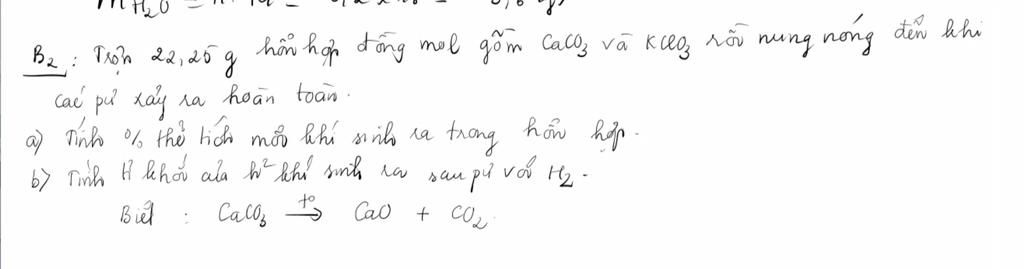 B₂ : Trộn 22,25 g hỗn hợp đồng mol gồm CaCO₃ và KClO₃ rồi nung nóng đến khi
các pứ xảy ra hoàn toàn.
a) Tính % thể tích mỗi khí sinh ra trong hỗn hợp.
b) Tính tỉ khối của h² khí sinh ra sau pứ với H₂.
Biết : CaCO₃ →(t°) CaO + CO₂.